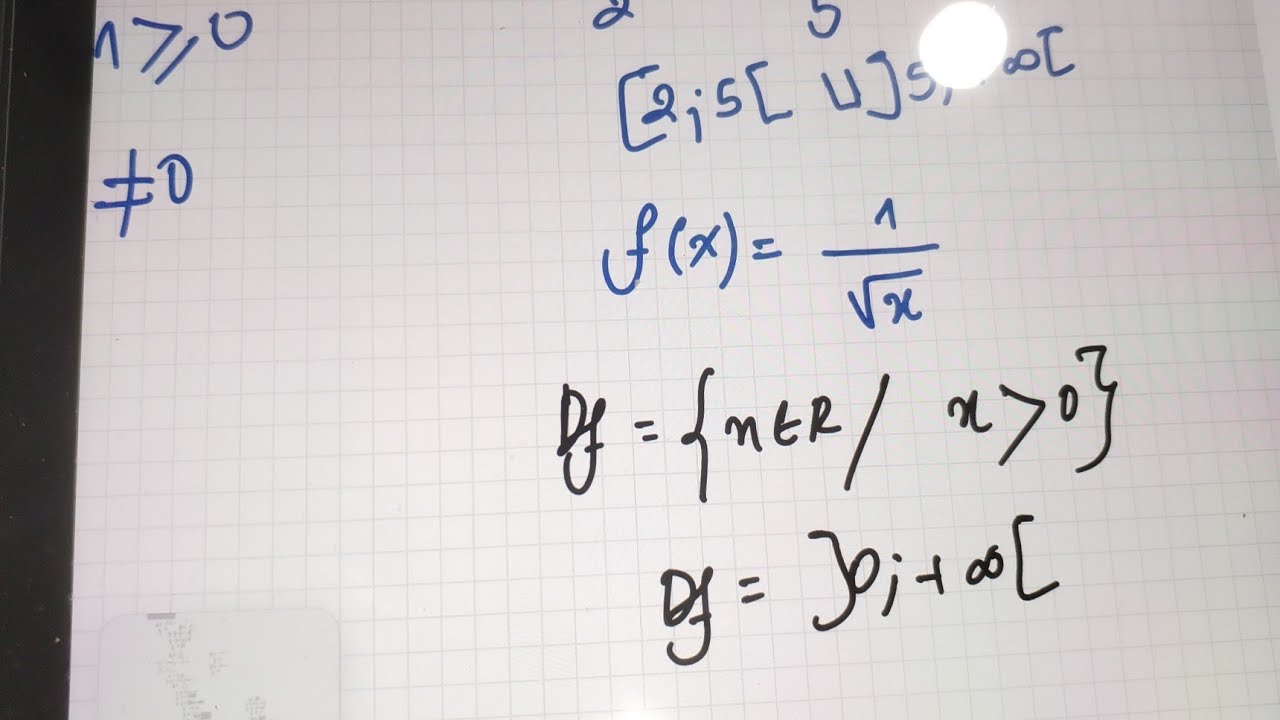 1 ⩾ 0
2 5
[2;5[ U ]5;+∞[
≠ 0
f(x) = 1/√x
Df = {x ∈ R / x > 0}
Df = ]0;+∞[